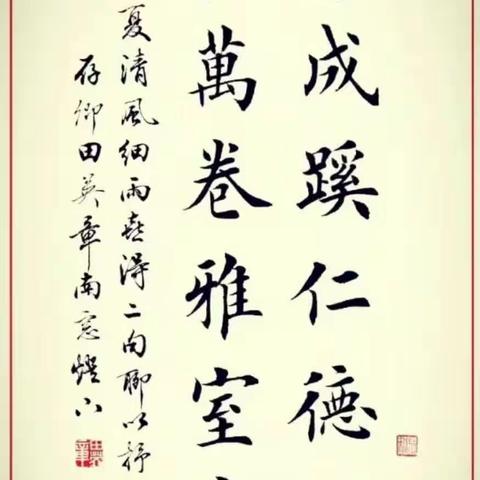 成蹊仁德
萬卷雅室
夏清風細雨喜得二句聊以抒
存卿田英章南窓燈下